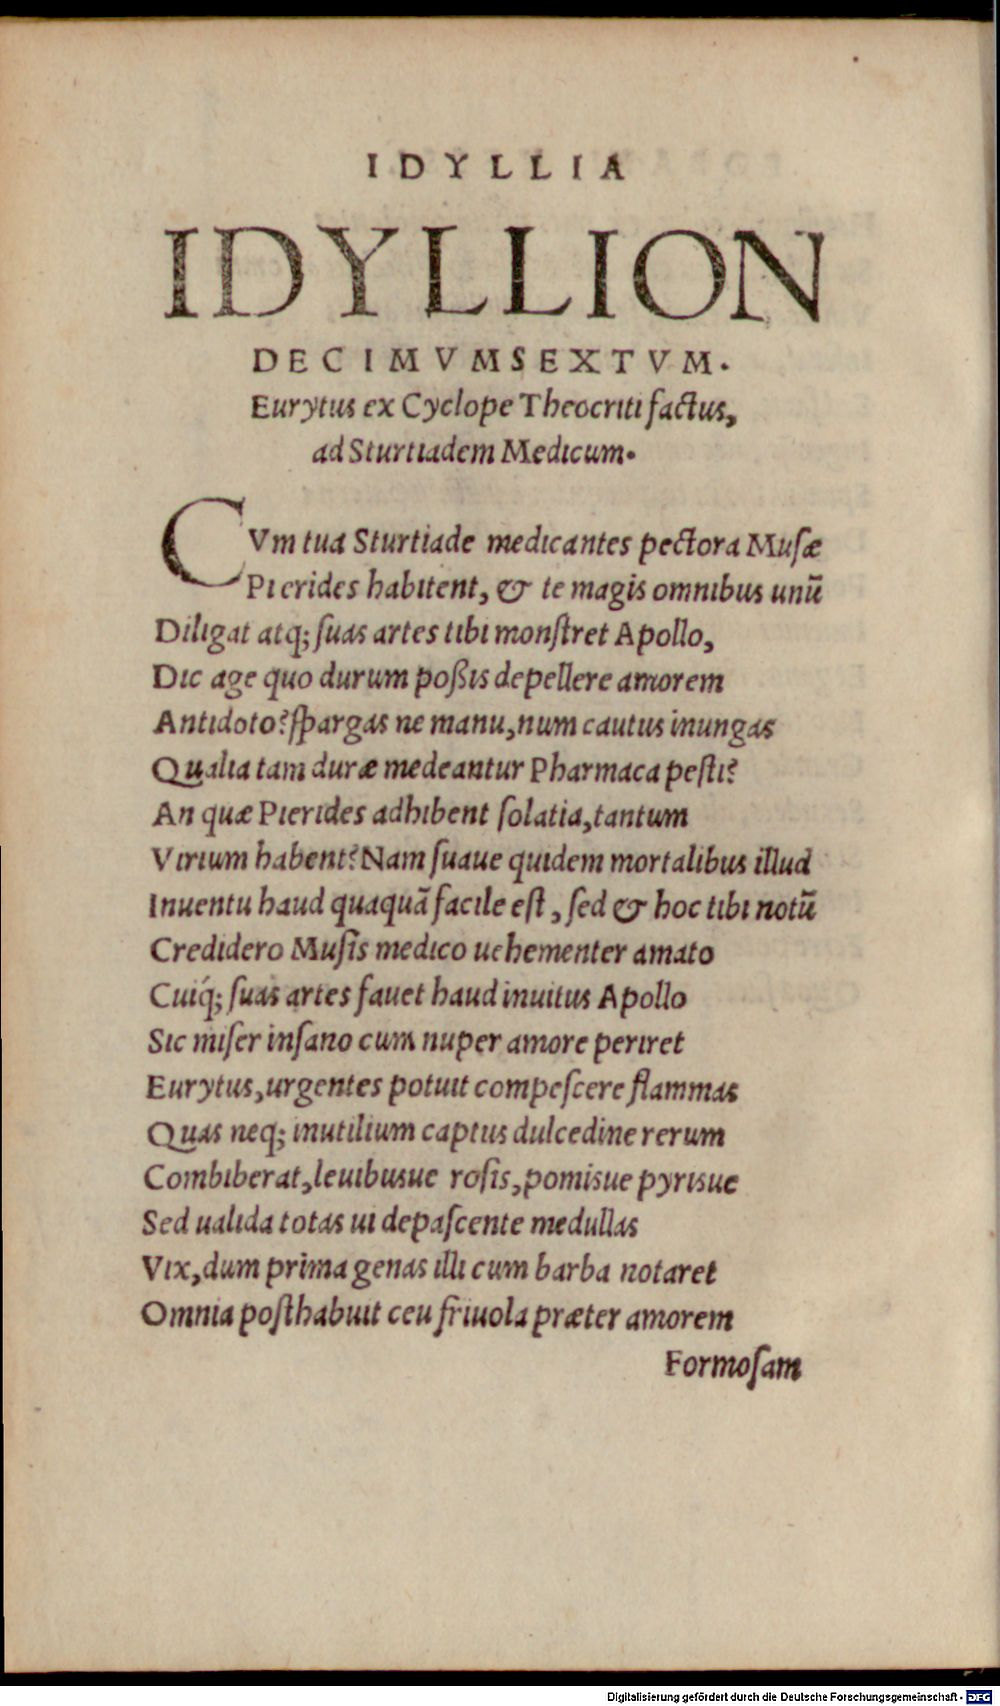 IDYLLIA
IDYLLION
DECIMVMSEXTVM.
Eurytus ex Cyclope Theocriti factus,
ad Sturtiadem Medicum.
CVm tua Sturtiade medicantes pectora Musæ
Pierides habitent, & te magis omnibus unũ
Diligat atq; ſuas artes tibi monſtret Apollo,
Dic age quo durum poßis depellere amorem
Antidoto? ſpargas ne manu, num cautus inungas
Qualia tam duræ medeantur Pharmaca peſti?
An quæ Pierides adhibent ſolatia, tantum
Virium habent? Nam ſuaue quidem mortalibus illud
Inuentu haud quaquã facile eſt, ſed & hoc tibi notũ
Credidero Muſis medico uehementer amato
Cuiq́; ſuas artes fauet haud inuitus Apollo
Sic miſer inſano cum nuper amore periret
Eurytus, urgentes potuit compeſcere flammas
Quas neq; inutilium captus dulcedine rerum
Combiberat, leuibusue roſis, pomisue pyrisue
Sed ualida totas ui depaſcente medullas
Vix, dum prima genas illi cum barba notaret
Omnia poſthabuit ceu friuola præter amorem
Formoſam
Digitalisierung gefördert durch die Deutsche Forschungsgemeinschaft - DFG